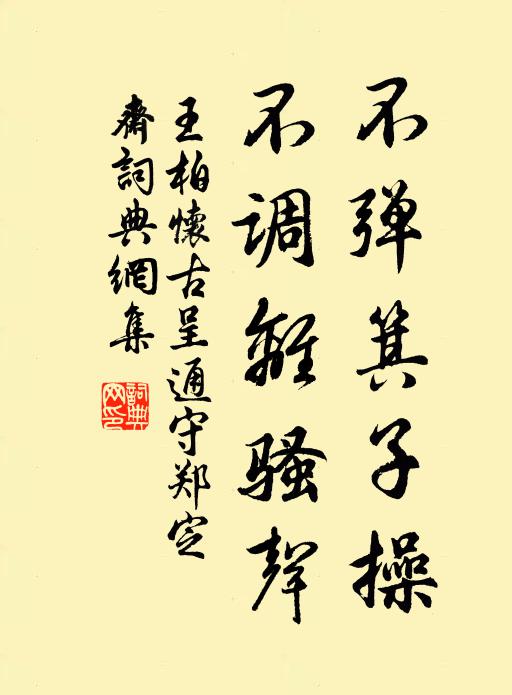 不弹箕子操
不调離骚聲
王柏懷古呈通守郑定
齋詞典網集
詞典
网印